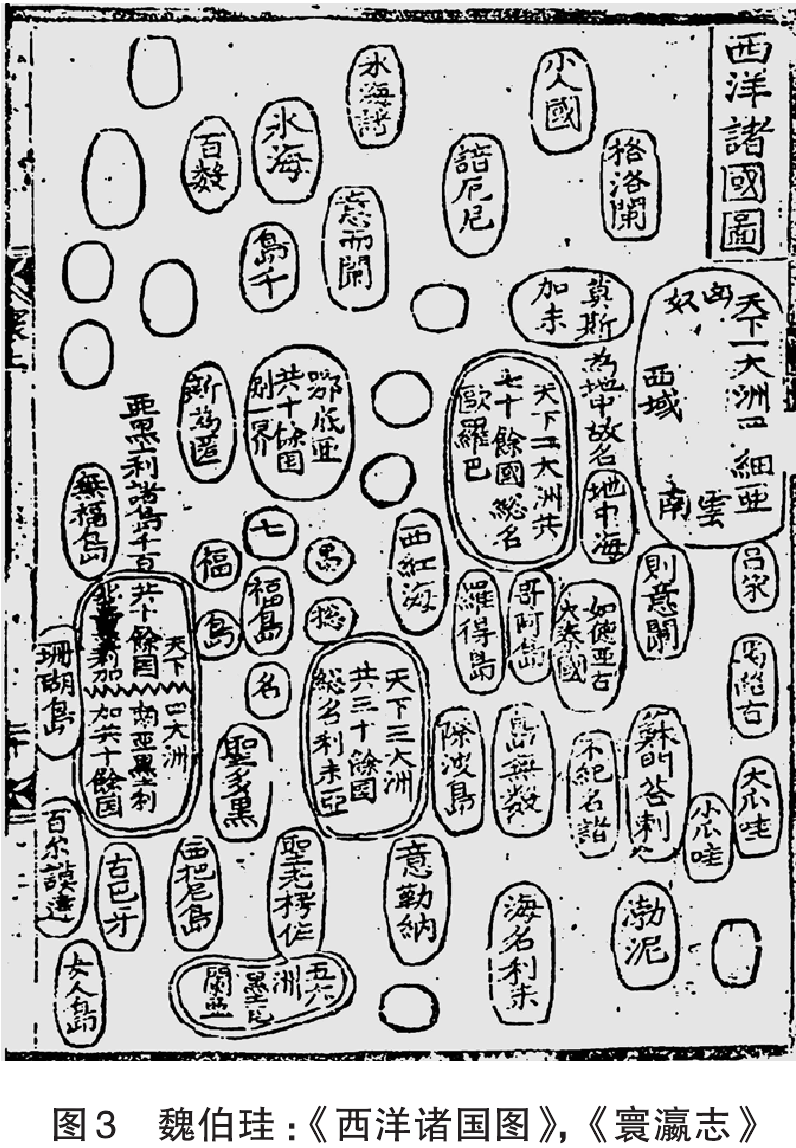 西洋諸國圖
小人國
格洛蘭
氷海諸
諳厄尼
氷海
百數
島千
意而蘭
莫斯
加未
為地中故名
地中海
天下一大洲
細亞
匈
奴
西域
雲
南
天下二大洲共
七十餘國總名
歐羅巴
鄂底亞
共十餘国
別一界
斯為匿
亞黑利諸島千百
無福島
七
福
島
福島
名
島
總
西紅海
羅得島
哥阿島
如德亞古
大秦國
則意蘭
呂宋
馬路古
天下
四大洲
共十餘国
南亞黑利
加共十餘国
珊瑚島
聖多黑
天下三大洲
共三十餘國
總名利未亞
除波島
島無數
不紀名諸
蘇門荅剌
小瓜哇
大瓜哇
百尔謨達
古巴牙
西把尼島
意勒納
海名利未
渤泥
女人島
五六
洲
墨瓦
蘭
图3　魏伯珪:《西洋诸国图》,《寰瀛志》